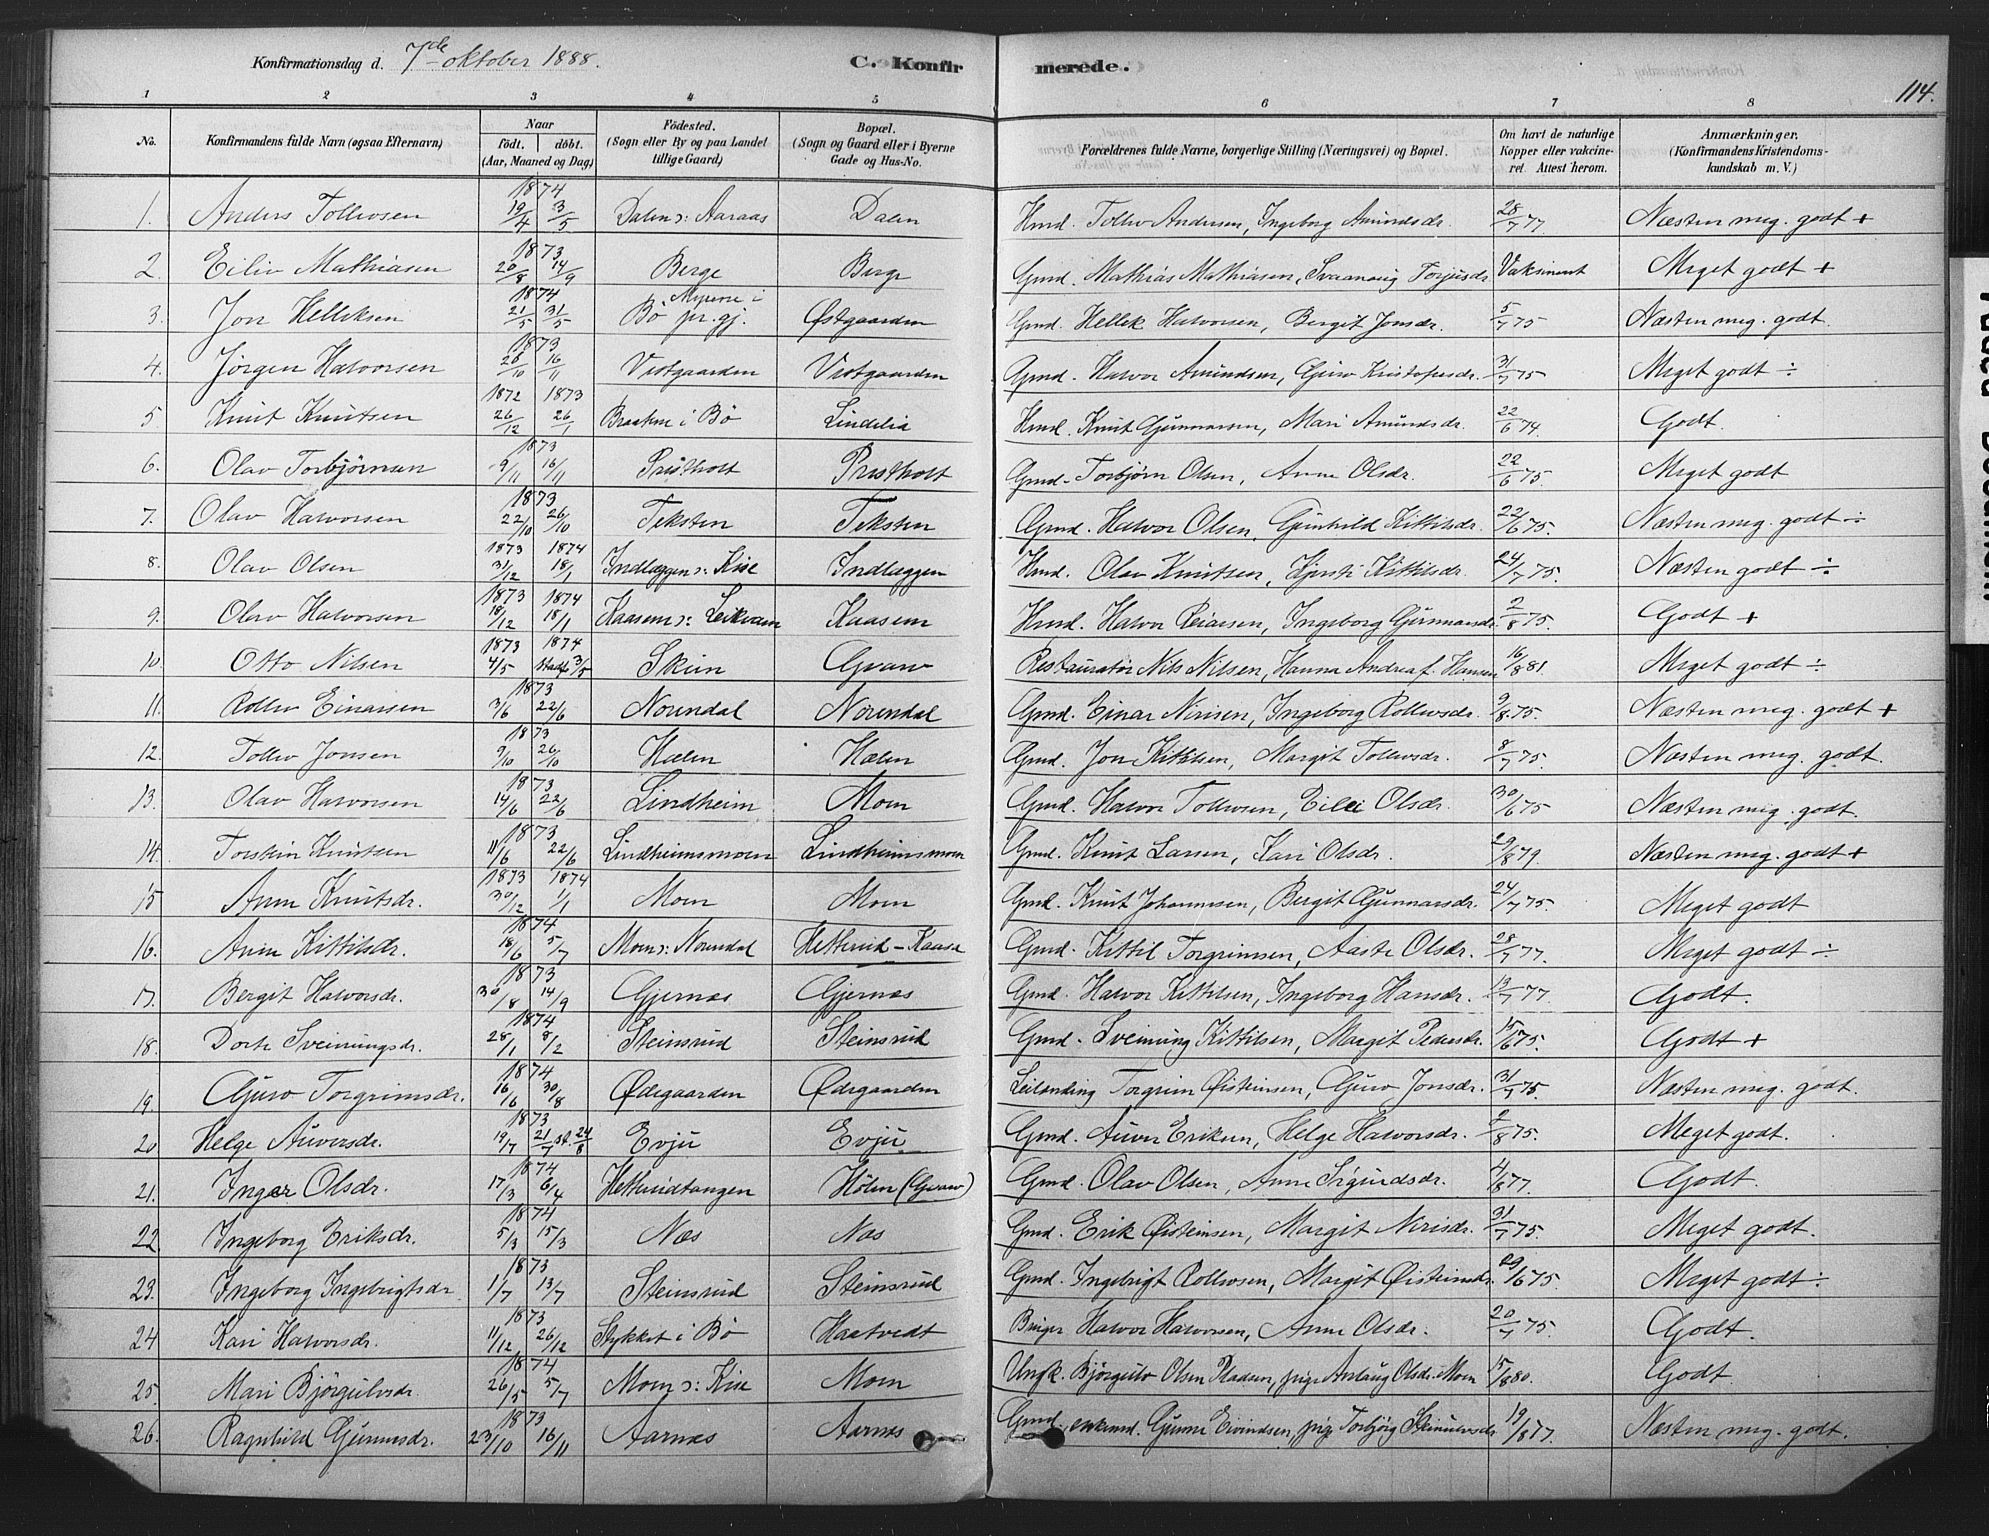 Konfirmationsdag d. 7de oktober 1888. C. Konfirmerede. 114.
1 2 3 4 5 6 7 8
No. Konfirmandens fulde Navn (ogsaa Efternavn) Naar födt. döbt. (Aar, Maaned og Dag) Födested. (Sogn eller By og paa Landet tillige Gaard) Bopæl. (Sogn og Gaard eller i Byerne Gade og Hus-No. Forældrenes fulde Navne, borgerlige Stilling (Næringsvei) og Bopæl. Om havt de naturlige Kopper eller vakcineret. Attest herom. Anmærkninger. (Konfirmandens Kristendomskundskab m. V.)
1. Anders Tollevsen 1874 19/4 3/5 Dalen s: Aaraas Dalen Hmd. Tollev Andersen, Ingeborg Amundsdr. 28/7 77. Næsten meg. godt +
2. Eiliv Mathiasen 1873 20/8 14/9 Berge Berge Gmd. Mathias Mathiasen, Svaanaug Torjusdr Vaksineret Meget godt +
3. Jon Helleksen 1874 21/5 31/5 Myrene i Bö pr.gj. Østgaarden Gmd. Hellek Halvorsen, Bergit Jonsdr. 5/7 75 Næsten meg. godt.
4. Jørgen Halvorsen 1873 28/10 16/11 Vestgaarden Vestgaarden Gmd. Halvor Amundsen, Guro Kristofersdr. 31/7 75 Meget godt ÷
5. Knut Knutsen 1872 26/12 1873 26/1 Braatene i Bö Lindelia Hmd. Knut Gunnarsen, Mari Amundsdr. 22/6 74. Godt.
6. Olav Torbjørnsen 1873 9/11 16/11 Præstholt Præstholt Gmd. Torbjørn Olsen, Anne Olsdr. 22/6 75. Meget godt
7. Olav Halvorsen 1873 22/10 26/10 Teksten Teksten Gmd. Halvor Olsen, Gunhild Kittilsdr. 22/6 75. Næsten meg. godt ÷
8. Olav Olsen 1873 31/12 1874 18/1 Indlæggen s: Kise Indlæggen Hmd. Olav Knutsen, Kjersti Kittilsdr. 24/7 75. Næsten godt ÷
9. Olav Halvorsen 1873 18/12 1874 18/1 Kaasene s: Leikvam Kaasene Hmd. Halvor Peiarsen, Ingeborg Gunnarsdr. 2/8 75. Godt +
10. Otto Nilsen 1873 4/5 1874 stadf. 3/5 Skien Gvarv Restauratør Nils Nilsen, Hanna Andrea f. Hansen 16/8 81. Meget godt ÷
11. Rollev Einarsen 1873 3/6 22/6 Norendal Norendal Gmd. Einar Nirisen, Ingeborg Rollevsdr. 9/8 75. Næsten meg. godt +
12. Tollev Jonsen 1873 9/10 26/10 Hælen Hælen Gmd. Jon Kittilsen, Margit Tollevsdr. 8/7 75. Næsten meg. godt.
13. Olav Halvorsen 1873 14/6 22/6 Lindheim Moen Gmd. Halvor Tollevsen, Eilei Olsdr. 30/6 75 Næsten meg. godt.
14. Torstein Knutsen 1873 11/6 22/6 Lindheimsmoen Lindheimsmoen Gmd. Knut Larsen, Kari Olsdr. 29/8 79. Næsten meg. godt +
15 Anne Knutsdr. 1873 30/12 1874 1/1 Moen Moen Gmd. Knut Johannesen, Bergit Gunnarsdr. 24/7 75. Meget godt
16. Anne Kittilsdr. 1874 18/6 5/7 Moen s: Norendal Hetterud-Kaasa Gmd. Kittil Torgrimsen, Aaste Olsdr. 28/7 77. Meget godt ÷
17. Bergit Halvorsdr. 1873 30/8 14/9 Gjernæs Gjernæs Gmd. Halvor Kittilsen, Ingeborg Hansdr. 13/7 77. Godt.
18. Dorte Sveinungsdr. 1874 28/1 8/2 Steinsrud Steinsrud Gmd. Sveinung Kittilsen, Margit Pedersdr. 15/6 75. Godt +
19. Guro Torgrimsdr. 1874 16/6 30/8 Ødegaarden Ødegaarden Leilending Torgrim Øisteinsen, Guro Jonsdr. 31/7 75. Næsten meg. godt.
20 Helge Auversdr. 1873 19/7 21/7 st. 24/8 Evju Evju Gmd. Auver Eriksen, Helge Halvorsdr. 2/8 75. Meget godt.
21. Inger Olsdr. 1874 17/3 6/4 Hetterudtangen Hölen (Gvarv) Gmd. Olav Olsen, Anne Sigurdsdr. 4/8 77. Godt.
22. Ingeborg Eriksdr. 1874 5/3 15/3 Næs Næs Gmd. Erik Øisteinsen, Margit Nirisdr. 31/7 75. Meget godt.
23. Ingeborg Ingebrigtsdr. 1873 1/7 13/7 Steinsrud Steinsrud Gmd. Ingebrigt Rollevsen, Margit Øisteinsdr. 29/6 75 Meget godt ÷
24 Kari Halvorsdr. 1873 11/12 26/12 Stykket i Bö Haatvedt Bruger Halvor Halvorsen, Anne Olsdr. 20/7 75. Godt.
25. Mari Bjørgulvsdr 1874 26/5 5/7 Moen s: Kise Moen Ungk. Bjørgulv Olsen Pladsen, pige Anlaug Olsdr. Moen 15/8 80. Godt.
26. Ragnhild Gunnesdr. 1873 23/10 16/11 Aarnæs Aarnæs Gmd. enkemd. Gunne Eivindsen, pige Torbjørg Steinersdr 19/8 77. Næsten meg. godt.